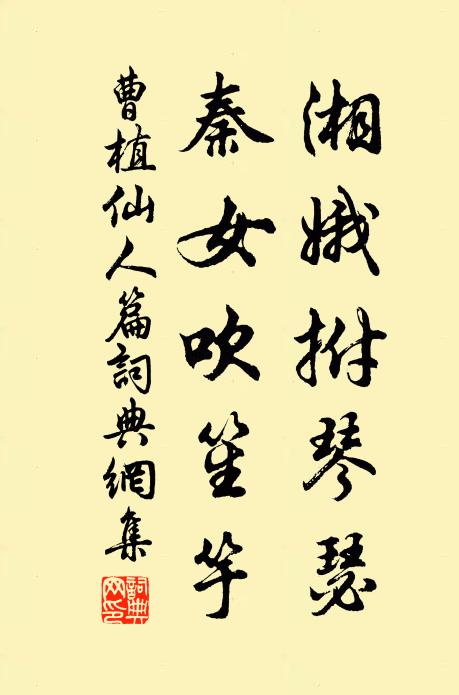 湘娥拊琴瑟
秦女吹笙竽
曹植仙人篇詞典網集
詞典网印